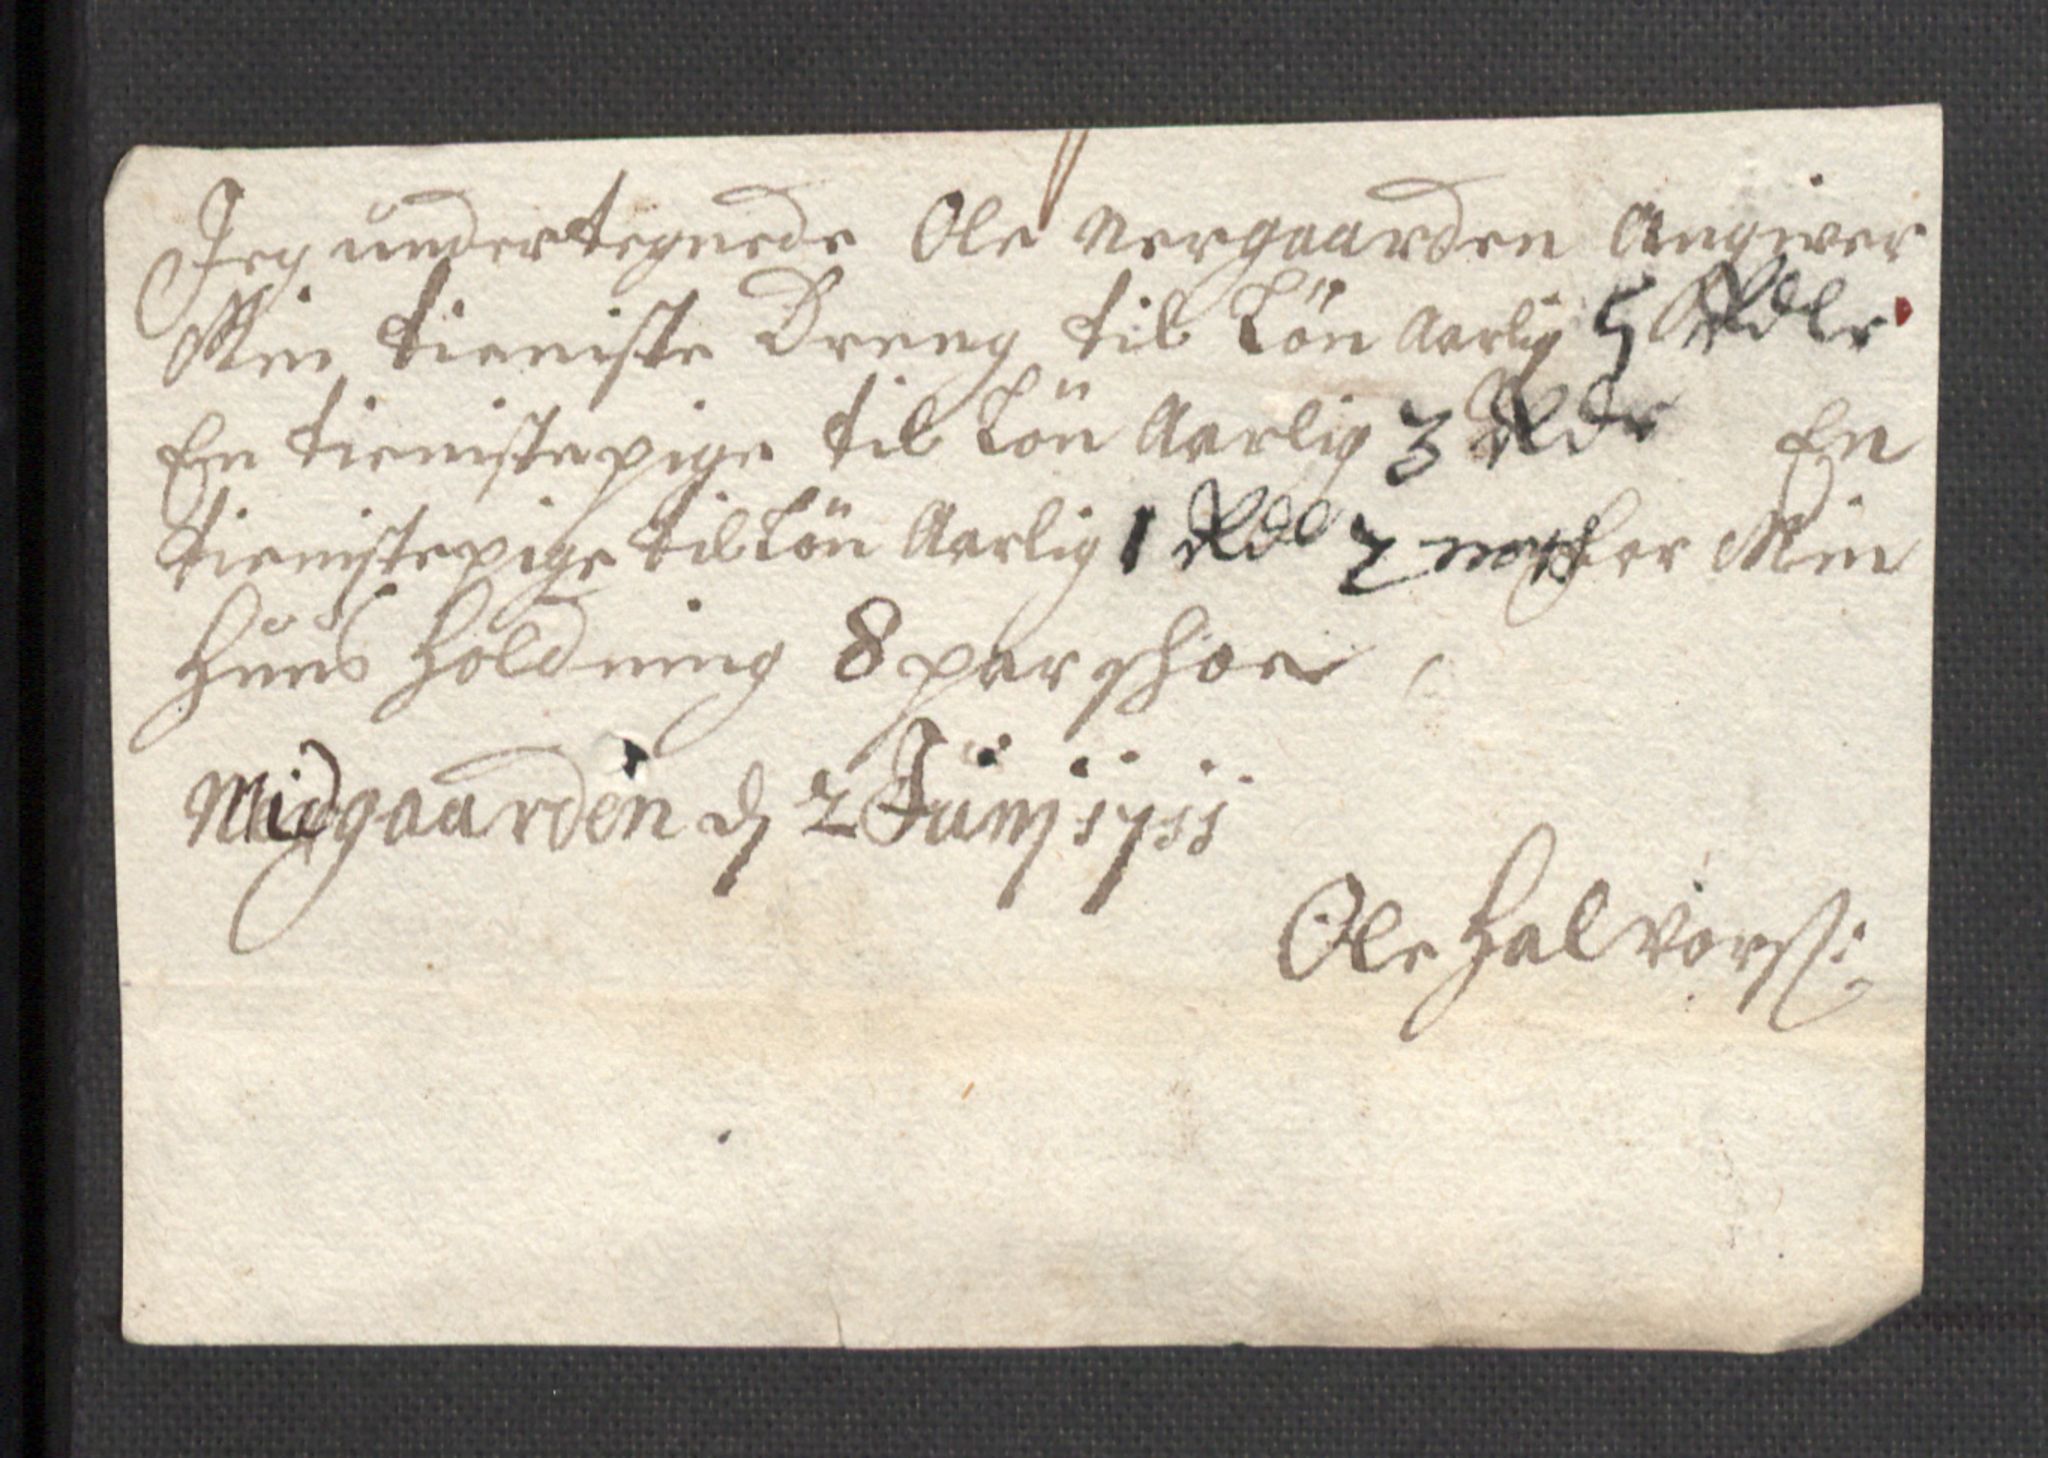 Jeg undertegnede Ole Nergaarden Angiver
Min tieniste Dreng til Lön Aarlig 5 Rdlr
En tienistepige til Lön Aarlig 3 Rdr En
tienistepige til Lön Aarlig 1 Rdl 2 mrk for Min
Huus Holdning 8 par skoe
Midgaarden d 2 Junij 1711
Ole Halvors: